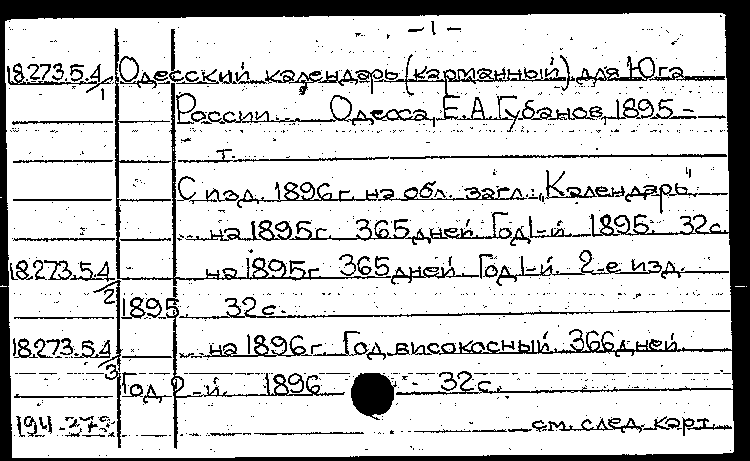 - 1 -
18.273.5.4/1 Одесский календарь (карманный) для Юга
России... Одесса, Е.А. Губанов, 1895 -
т.
С изд. 1896 г. на обл. загл.: „Календарь"
... на 1895 г. 365 дней. Год 1-й. 1895. 32 с.
18.273.5.4/2 ... на 1895 г. 365 дней. Год 1-й. 2-е изд.
1895. 32 с.
18.273.5.4/3 ... на 1896 г. Год високосный. 366 дней.
Год 2-й. 1896. - 32 с.
194-373 см. след. карт.